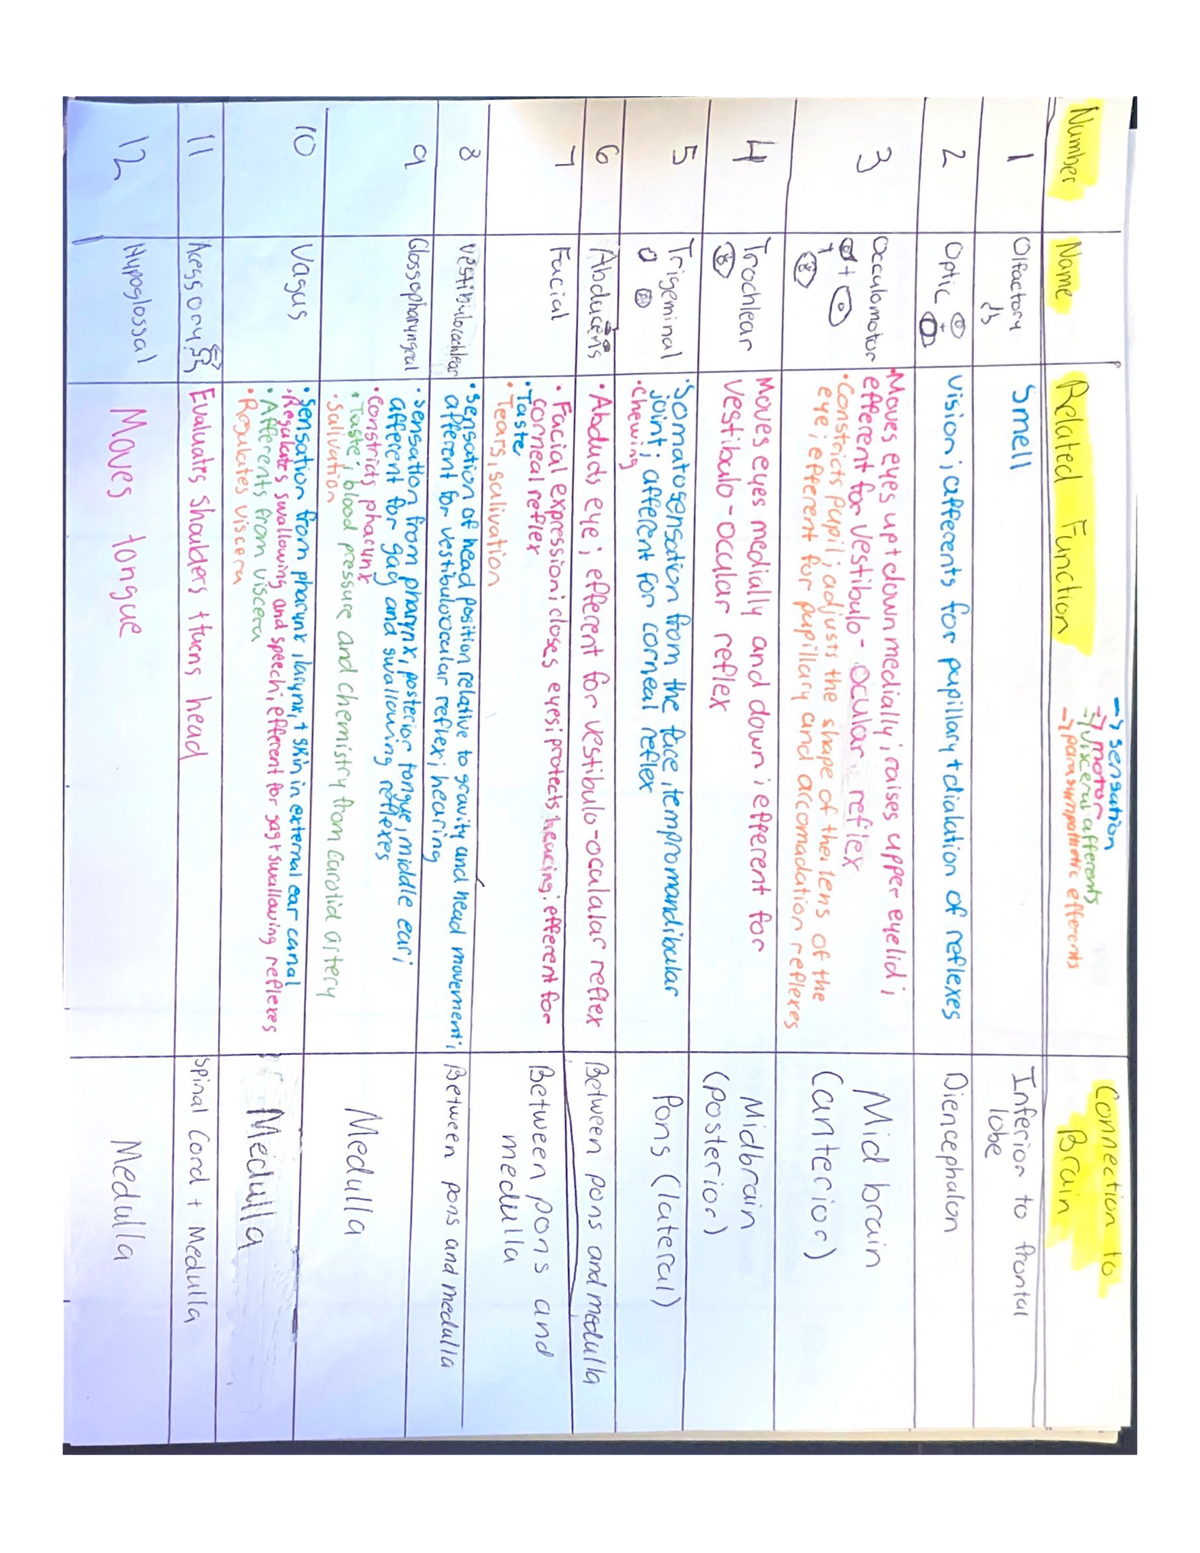 → sensation
→ motor
→ visceral afferents
→ parasympathetic efferents
Number
Name
Related Function
Connection to
Brain
1
Olfactory
Smell
Inferior to frontal
lobe
2
Optic
Vision; afferents for pupillary + dialation of reflexes
Diencephalon
3
Occulomotor
•Moves eyes up + down medially; raises upper eyelid;
efferent for vestibulo-ocular reflex
•Constricts pupil; adjusts the shape of the lens of the
eye; efferent for pupillary and accomadation reflexes
Mid brain
(anterior)
4
Trochlear
Moves eyes medially and down; efferent for
vestibulo-ocular reflex
Midbrain
(posterior)
5
Trigeminal
•Somatosensation from the face, tempromandibular
joint; afferent for corneal reflex
•chewing
Pons (lateral)
6
Abducens
•Abducts eye; efferent for vestibulo-ocalalar reflex
Between pons and medulla
7
Facial
•Facial expression; closes eyes; protects hearing; efferent for
corneal reflex
•Taste
•Tears, salivation
Between pons and
medulla
8
Vestibulocochlear
•Sensation of head position relative to gravity and head movement;
afferent for vestibuloocular reflex; hearing
Between pons and medulla
9
Glossopharyngeal
•Sensation from pharynx, posterior tongue, middle ear;
afferent for gag and swallowing reflexes
•Constricts pharynx
•Taste; blood pressure and chemistry from carotid artery
•Salivation
Medulla
10
Vagus
•Sensation from pharynx, larynx, + skin in external ear canal
•Regulates swallowing and speech; efferent for gag + swallowing reflexes
•Afferents from viscera
•Regulates viscera
Medulla
11
Acessory
Evaluates shoulders + turns head
Spinal Cord + Medulla
12
Hypoglossal
Moves tongue
Medulla